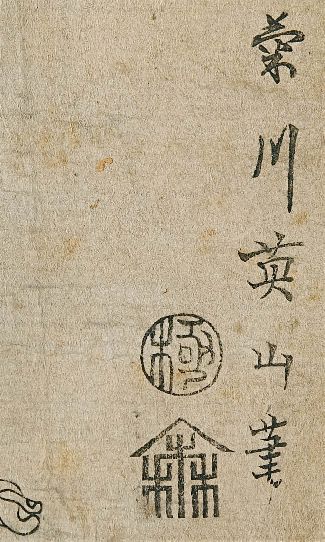 菊川英山筆
極
森